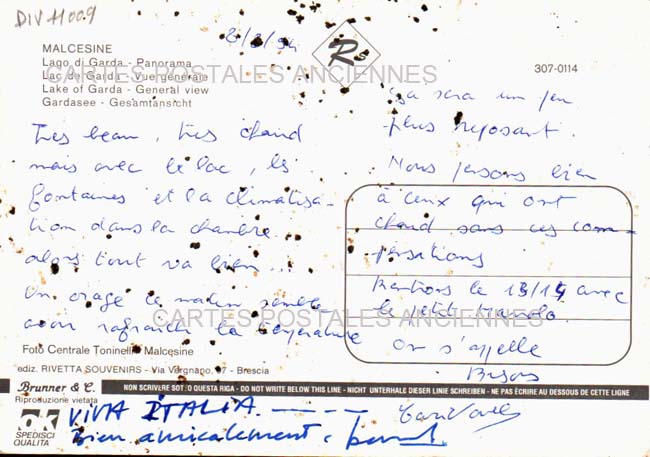 DIV 11009
2/8/94
MALCESINE
Lago di Garda - Panorama
Lac de Garda - Vue générale
Lake of Garda - General view
Gardasee - Gesamtansicht
Rs
307-0114
CARTES POSTALES ANCIENNES
Très beau, très chaud
mais avec le lac, les
fontaines et la climatisa-
tion dans la chambre
alors tout va bien...
Un orage ce matin semble
avoir rafraîchi la température
ça sera un peu
plus reposant.
Nous pensons bien
à ceux qui ont
chaud sans ces com-
pensations
Rentrons le 13/14 avec
le petit
On s'appelle
Bisous
CARTES POSTALES ANCIENNES
Foto Centrale Toninelli Malcesine
ediz. RIVETTA SOUVENIRS - Via Vergnano, 87 - Brescia
Brunner & C.
Riproduzione vietata
NON SCRIVERE SOTTO QUESTA RIGA - DO NOT WRITE BELOW THIS LINE - NICHT UNTERHALB DIESER LINIE SCHREIBEN - NE PAS ÉCRIRE AU DESSOUS DE CETTE LIGNE
ok
SPEDISCI
QUALITÀ
VIVA ITALIA. - - - -
Bien amicalement,